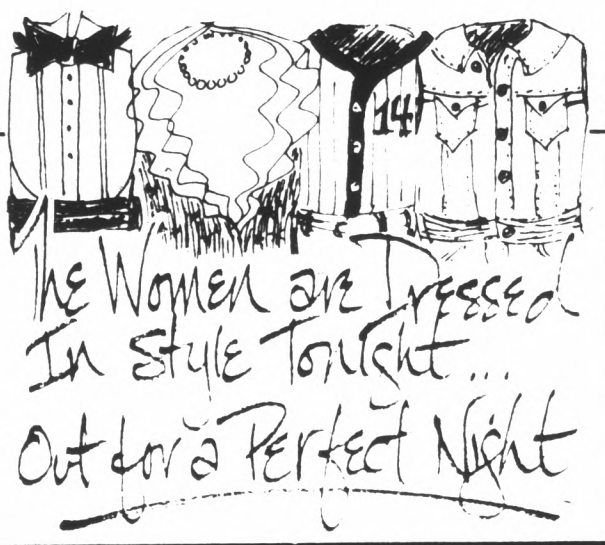 14
The Women are Dressed
In Style Tonight...
Out for a Perfect Night